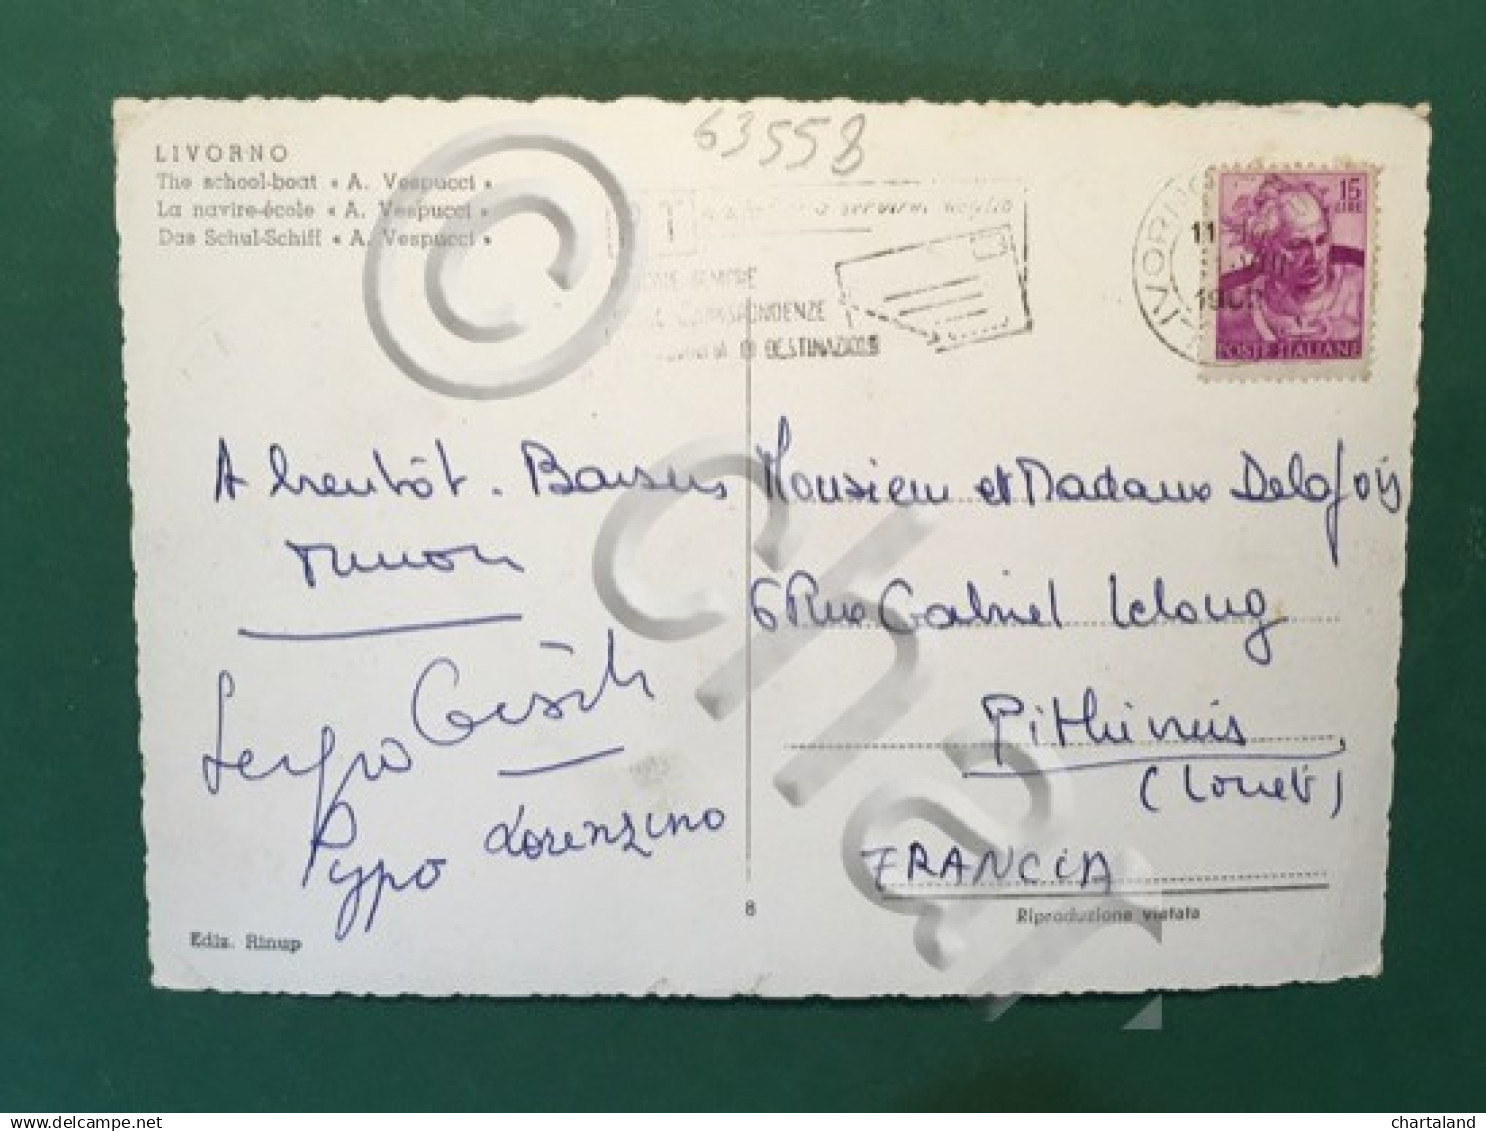 63558
LIVORNO
The school-boat « A. Vespucci »
La navire-école « A. Vespucci »
Das Schul-Schiff « A. Vespucci »
SEMPRE
CORRISPONDENZE
DI DESTINAZIONE
LIVORNO
15
LIRE
POSTE ITALIANE
A bientôt. Baisers
Sergio
Pypo Lorenzino
Monsieur et Madame Delafois
6 Rue Gabriel Lelong
Pithiviers
(Loiret)
FRANCIA
8
Riproduzione vietata
Ediz. Rinup
©
chartaland